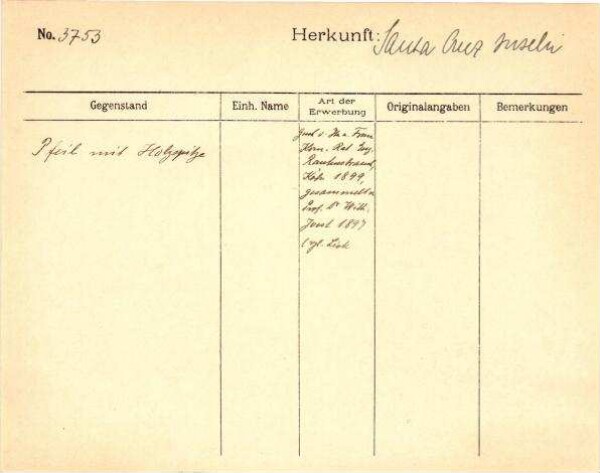 No. 3753
Herkunft: Santa Cruz Inseln
Gegenstand
Einh. Name
Art der
Erwerbung
Originalangaben
Bemerkungen
Pfeil mit Holzspitze
Gesch. v. H. u. Frau
Kom. Rat Eug.
Rautenstrauch,
Köln 1899,
gesammelt v.
Prof. Dr Wilh.
Joest 1897